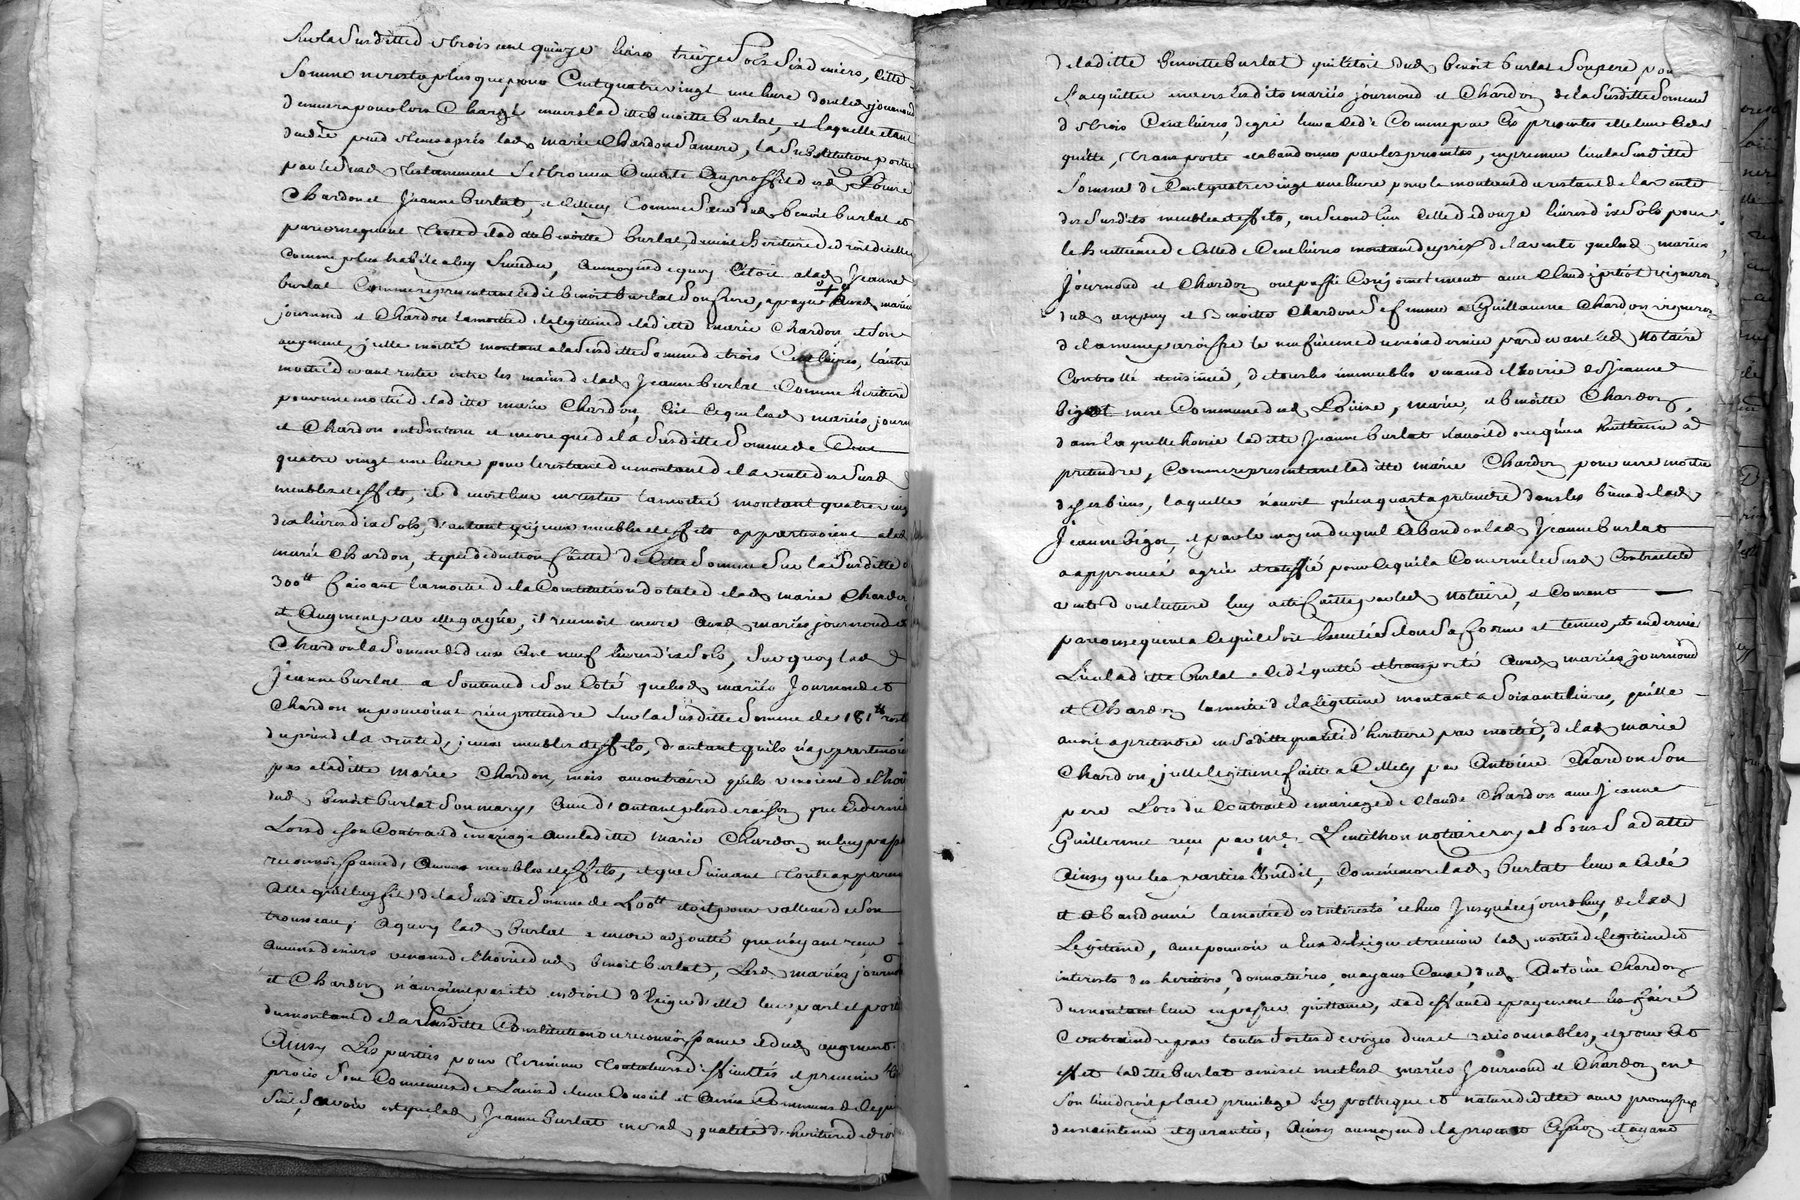 Sur la susditte de trois cent quinze livres treize sols six deniers, cette
somme ne resta plus que pour Cent quatre vingt une livre dont led journoud
demeura pour lors Chargé envers laditte benoitte burlat, et laquelle etant
peu de tems aprés lad marie Chardon sa mere, la substitution portée
par led testament se trouva ouverte au proffit dud Louise
Chardon et Jeanne burlat, et celle cy comme soeur dud benoit burlat et
par consequent tante de laditte benoitte burlat, devint heritiere de droit d'icelle
comme plus habile a luy succeder, au moyen de quoy c'étoit a lad Jeanne
burlat comme representant ledit benoit burlat son frere, a payer aux mariés
journoud et Chardon la moitié de la legitime de laditte marie Chardon et son
augment, icelle moitié montant a la susditte somme de trois Cent livres, l'autre
moitié devant rester entre les mains de lad Jeanne burlat comme heritiere
pour une moitié de laditte marie Chardon, c'est ce que lesd mariés journ
et Chardon ont soutenu et encore que de la susditte somme de Cent
quatre vingt une livre pour le restant du montant de la vente des susd
meubles et effets, il devoit leur en rester la moitié montant quatre vingt
dix livres dix sols, d'autant qu'iceux meubles et effets appartenoient a lad
marie Chardon, et que deduction faitte de cette somme sur la susditte de
300tt faisant la moitié de la Constitution dotale de lad marie Chardon
et augment par elle gagné, il revenoit encore auxd mariés journoud et
Chardon la somme de deux Cent neuf livres dix sols, sur quoy lad
Jeanne burlat a soutenu de son coté que lesd mariés Journoud et
Chardon ne pouvoient rien pretendre sur la susditte somme de 181tt reste
du prix de la vente d'iceux meubles et effets, d'autant qu'ils n'appartenoient
pas a laditte marie Chardon, mais au contraire qu'ils venoient de l'hoirie
dud benoit burlat son mary, avec d'autant plus de raison que ce dernier
Lors de son Contract de mariage avec laditte marie Chardon ne luy passa
reconnoissance d'aucuns meubles et effets, et que suivant toute apparence
celle qu'il luy fit de la susditte somme de 600tt étoit pour valleur de son
trousseau; a quoy lad burlat a encore adjoutté que n'ayant reçu
aucuns deniers venans de l'hoirie dud benoit burlat, Lesd mariés journoud
et Chardon n'auroient pas été en droit d'exiger d'elle leur part et portion
du montant de la susditte Constitution ou reconnoissance et dud augment.
Ainsy Les parties pour terminer toutes leurs difficultés et prevenir tout
procés sont convenues de L'avis de leur Conseil et amis Communs de ce qui
suit, Scavoir est que lad Jeanne burlat en sad qualité d'heritiere de droit
de laditte benoitte burlat qui l'étoit dud benoit burlat son pere pour
s'acquitter envers lesdits mariés journoud et Chardon de la susditte somme
de trois Cent livres, de gré leur a cedé comme par ces presentes elle leur cede
quitte, transporte et abandonne par les presentes, en premier lieu la susditte
somme de Cent quatre vingt une livre pour le montant du restant de la vente
des susdits meubles et effets, en second lieu celle de douze livres dix sols pour
le huitieme de celle de Cent livres montant du prix de la vente que lesd mariés
Journoud et Chardon ont passé Conjointement avec Claude vigneron
dud ampuy et benoitte Chardon sa femme a Guillaume Chardon vigneron
de la meme paroisse le neufieme du mois dernier pardevant led Notaire
Controllé et insinué, de tous les immeubles venans de l'hoirie de Jeanne
bigot mere Commune dud Louise, marie, et benoitte Chardon,
dans laquelle hoirie laditte Jeanne burlat n'avoit donc qu'un huitieme a
pretendre, comme representant laditte marie Chardon pour une moitié
de ses biens, laquelle n'avoit qu'un quart a pretendre dans les biens de lad
Jeanne bigot, et par le moyen duquel abandon lad Jeanne burlat
a approuvé agréé et ratiffié pour ce qui la Concerne le susd Contract de
vente dont lecture luy a été faitte par led notaire, et Consent
par consequent a ce qu'il soit executé selon sa forme et teneur, et en dernier
Lieu laditte burlat a cedé quitté et transporté auxd mariés journoud
et Chardon la moitié de la legitime montant a soixante livres, qu'elle
avoit a pretendre en saditte qualité d'heritiere par moitié, de lad marie
Chardon, icelle legitime faitte a celle cy par Antoine Chardon son
pere Lors du Contract de mariage de Claude Chardon avec Jeanne
Guillermet reçu par Me. Lentilhon notaire royal sous sa datte
ainsy que les parties l'ont dit, comme encore lad burlat leur a cedé
et abandonné la moitié des interests echus jusqu'a ce jourd'huy, de lad
Legitime, avec pouvoir a eux d'exiger et recevoir lad moitié de legitime et
interests des heritiers, donnataires, ou ayans Cause, dud Antoine Chardon
du montant leur en passer quittance, et a deffaut de payement les faire
Contraindre par toutes sortes de voyes dues et raisonnables, et pour cet
effet laditte burlat a mis et met lesd mariés Journoud et Chardon en
son lieu droit place privilege hypotheque et nature de dette avec promesse
de maintenir et garantir, ainsy au moyen de la presente Cession et ayant